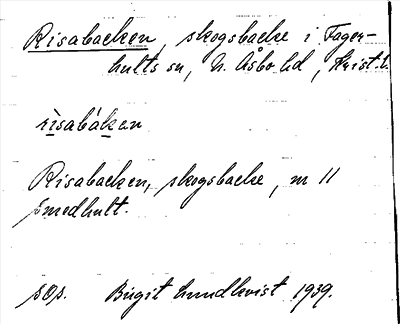 Risabacken, skogsbacke i Fager-
hults sn, N. Åsbo hd, Krist. l.
rìsabákan
Risabacken, skogsbacke, nr 11
Smedhult.
sOp. Birgit Lundkvist 1939.